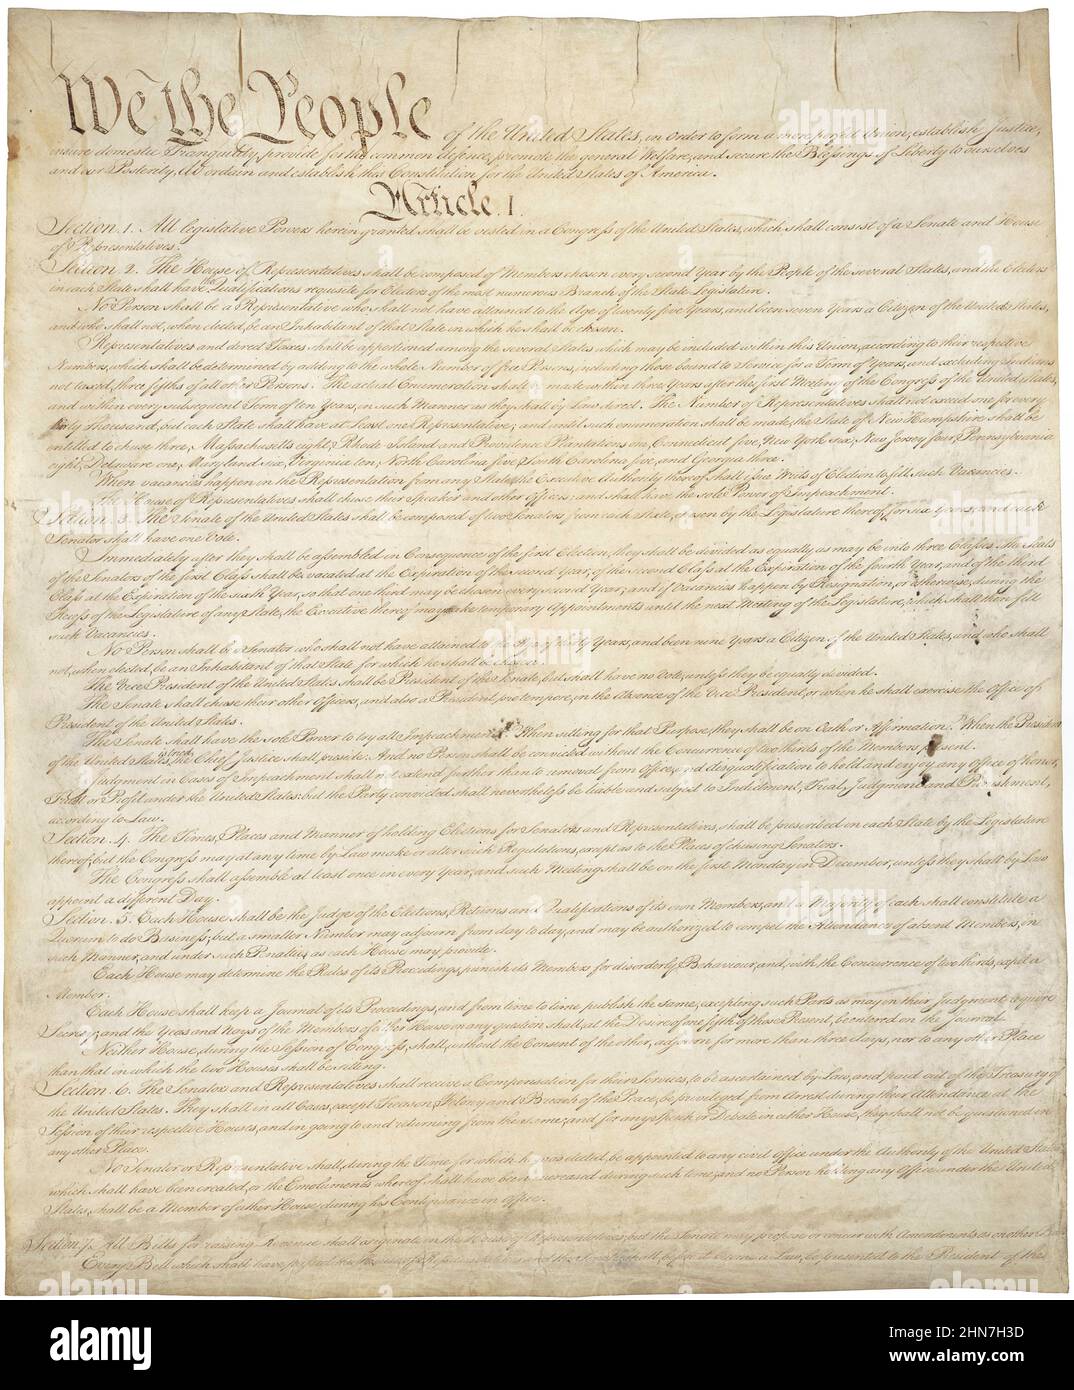 We the People of the United States, in Order to form a more perfect Union, establish Justice,
insure domestic Tranquility, provide for the common defence, promote the general Welfare, and secure the Blessings of Liberty to ourselves
and our Posterity, do ordain and establish this Constitution for the United States of America.
Article. I.
Section. 1. All legislative Powers herein granted shall be vested in a Congress of the United States, which shall consist of a Senate and House
of Representatives.
Section. 2. The House of Representatives shall be composed of Members chosen every second Year by the People of the several States, and the Electors
in each State shall have the Qualifications requisite for Electors of the most numerous Branch of the State Legislature.
No Person shall be a Representative who shall not have attained to the Age of twenty five Years, and been seven Years a Citizen of the United States,
and who shall not, when elected, be an Inhabitant of that State in which he shall be chosen.
Representatives and direct Taxes shall be apportioned among the several States which may be included within this Union, according to their respective
Numbers, which shall be determined by adding to the whole Number of free Persons, including those bound to Service for a Term of Years, and excluding Indians
not taxed, three fifths of all other Persons. The actual Enumeration shall be made within three Years after the first Meeting of the Congress of the United States,
and within every subsequent Term of ten Years, in such Manner as they shall by Law direct. The Number of Representatives shall not exceed one for every
thirty Thousand, but each State shall have at Least one Representative; and until such enumeration shall be made, the State of New Hampshire shall be
entitled to chuse three, Massachusetts eight, Rhode Island and Providence Plantations one, Connecticut five, New York six, New Jersey four, Pennsylvania
eight, Delaware one, Maryland six, Virginia ten, North Carolina five, South Carolina five, and Georgia three.
When vacancies happen in the Representation from any State, the Executive Authority thereof shall issue Writs of Election to fill such Vacancies.
The House of Representatives shall chuse their Speaker and other Officers; and shall have the sole Power of Impeachment.
Section. 3. The Senate of the United States shall be composed of two Senators from each State, chosen by the Legislature thereof, for six Years; and each
Senator shall have one Vote.
Immediately after they shall be assembled in Consequence of the first Election, they shall be divided as equally as may be into three Classes. The Seats
of the Senators of the first Class shall be vacated at the Expiration of the second Year, of the second Class at the Expiration of the fourth Year, and of the third
Class at the Expiration of the sixth Year, so that one third may be chosen every second Year; and if Vacancies happen by Resignation, or otherwise, during the
Recess of the Legislature of any State, the Executive thereof may make temporary Appointments until the next Meeting of the Legislature, which shall then fill
such Vacancies.
No Person shall be a Senator who shall not have attained to the Age of thirty Years, and been nine Years a Citizen of the United States, and who shall
not, when elected, be an Inhabitant of that State for which he shall be chosen.
The Vice President of the United States shall be President of the Senate, but shall have no Vote, unless they be equally divided.
The Senate shall chuse their other Officers, and also a President pro tempore, in the Absence of the Vice President, or when he shall exercise the Office of
President of the United States.
The Senate shall have the sole Power to try all Impeachments. When sitting for that Purpose, they shall be on Oath or Affirmation. When the President
of the United States is tried, the Chief Justice shall preside: And no Person shall be convicted without the Concurrence of two thirds of the Members present.
Judgment in Cases of Impeachment shall not extend further than to removal from Office, and disqualification to hold and enjoy any Office of honor,
Trust or Profit under the United States: but the Party convicted shall nevertheless be liable and subject to Indictment, Trial, Judgment and Punishment,
according to Law.
Section. 4. The Times, Places and Manner of holding Elections for Senators and Representatives, shall be prescribed in each State by the Legislature
thereof; but the Congress may at any time by Law make or alter such Regulations, except as to the Places of chusing Senators.
The Congress shall assemble at least once in every Year, and such Meeting shall be on the first Monday in December, unless they shall by Law
appoint a different Day.
Section. 5. Each House shall be the Judge of the Elections, Returns and Qualifications of its own Members, and a Majority of each shall constitute a
Quorum to do Business; but a smaller Number may adjourn from day to day, and may be authorized to compel the Attendance of absent Members, in
such Manner, and under such Penalties as each House may provide.
Each House may determine the Rules of its Proceedings, punish its Members for disorderly Behaviour, and, with the Concurrence of two thirds, expel a
Member.
Each House shall keep a Journal of its Proceedings, and from time to time publish the same, excepting such Parts as may in their Judgment require
Secrecy; and the Yeas and Nays of the Members of either House on any question shall, at the Desire of one fifth of those Present, be entered on the Journal.
Neither House, during the Session of Congress, shall, without the Consent of the other, adjourn for more than three days, nor to any other Place
than that in which the two Houses shall be sitting.
Section. 6. The Senators and Representatives shall receive a Compensation for their Services, to be ascertained by Law, and paid out of the Treasury of
the United States. They shall in all Cases, except Treason, Felony and Breach of the Peace, be privileged from Arrest during their Attendance at the
Session of their respective Houses, and in going to and returning from the same; and for any Speech or Debate in either House, they shall not be questioned in
any other Place.
No Senator or Representative shall, during the Time for which he was elected, be appointed to any civil Office under the Authority of the United States,
which shall have been created, or the Emoluments whereof shall have been encreased during such time; and no Person holding any Office under the United
States, shall be a Member of either House during his Continuance in Office.
Section. 7. All Bills for raising Revenue shall originate in the House of Representatives; but the Senate may propose or concur with Amendments as on other Bills.
Every Bill which shall have passed the House of Representatives and the Senate, shall, before it become a Law, be presented to the President of the
alamy
alamy
alamy
alamy
alamy
alamy
alamy
alamy
Image ID: 2HN7H3D
www.alamy.com